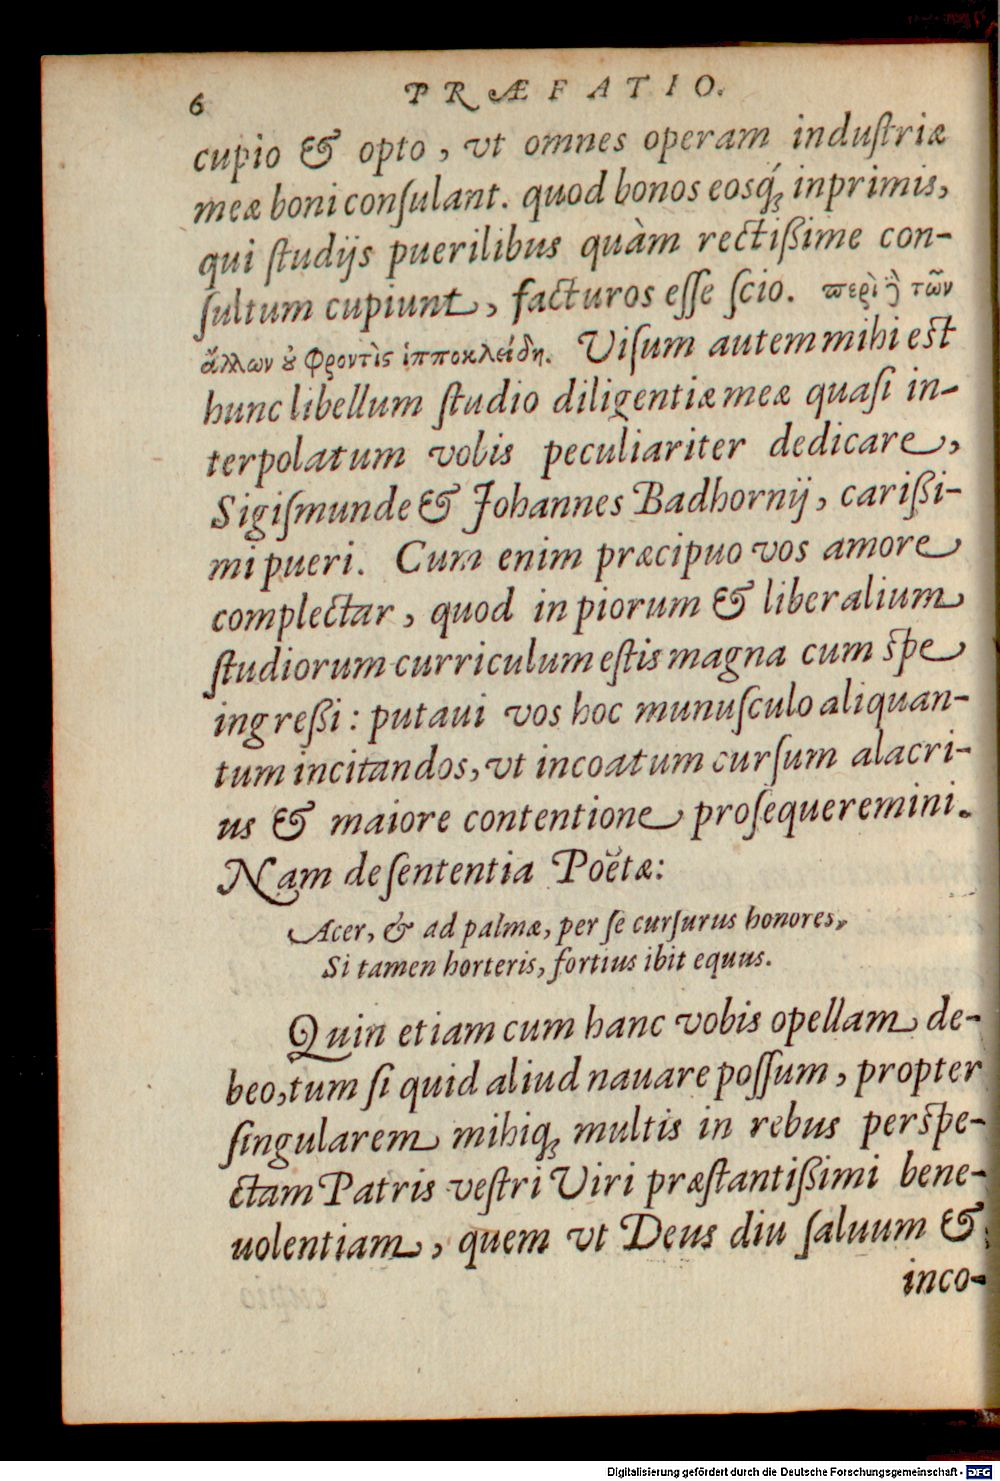 6 PRÆFATIO.
cupio & opto, vt omnes operam industriæ
meæ boni consulant. quod bonos eosq́; inprimis,
qui studijs puerilibus quàm rectißime con-
sultum cupiunt, facturos esse scio. περὶ δὲ τῶν
ἄλλων οὐ φροντὶς ἱπποκλείδη. Visum autem mihi est
hunc libellum studio diligentiæ meæ quasi in-
terpolatum vobis peculiariter dedicare,
Sigismunde & Johannes Badhornij, carißi-
mi pueri. Cum enim præcipuo vos amore
complectar, quod in piorum & liberalium
studiorum curriculum estis magna cum spe
ingreßi: putaui vos hoc munusculo aliquan-
tum incitandos, vt incoatum cursum alacri-
us & maiore contentione prosequeremini.
Nam de sententia Poëtæ:
Acer, & ad palmæ, per se cursurus honores,
Si tamen horteris, fortius ibit equus.
Quin etiam cum hanc vobis opellam de-
beo, tum si quid aliud nauare possum, propter
singularem mihiq; multis in rebus perspe-
ctam Patris vestri Viri præstantißimi bene-
uolentiam, quem vt Deus diu saluum &
inco-
Digitalisierung gefördert durch die Deutsche Forschungsgemeinschaft - DFG